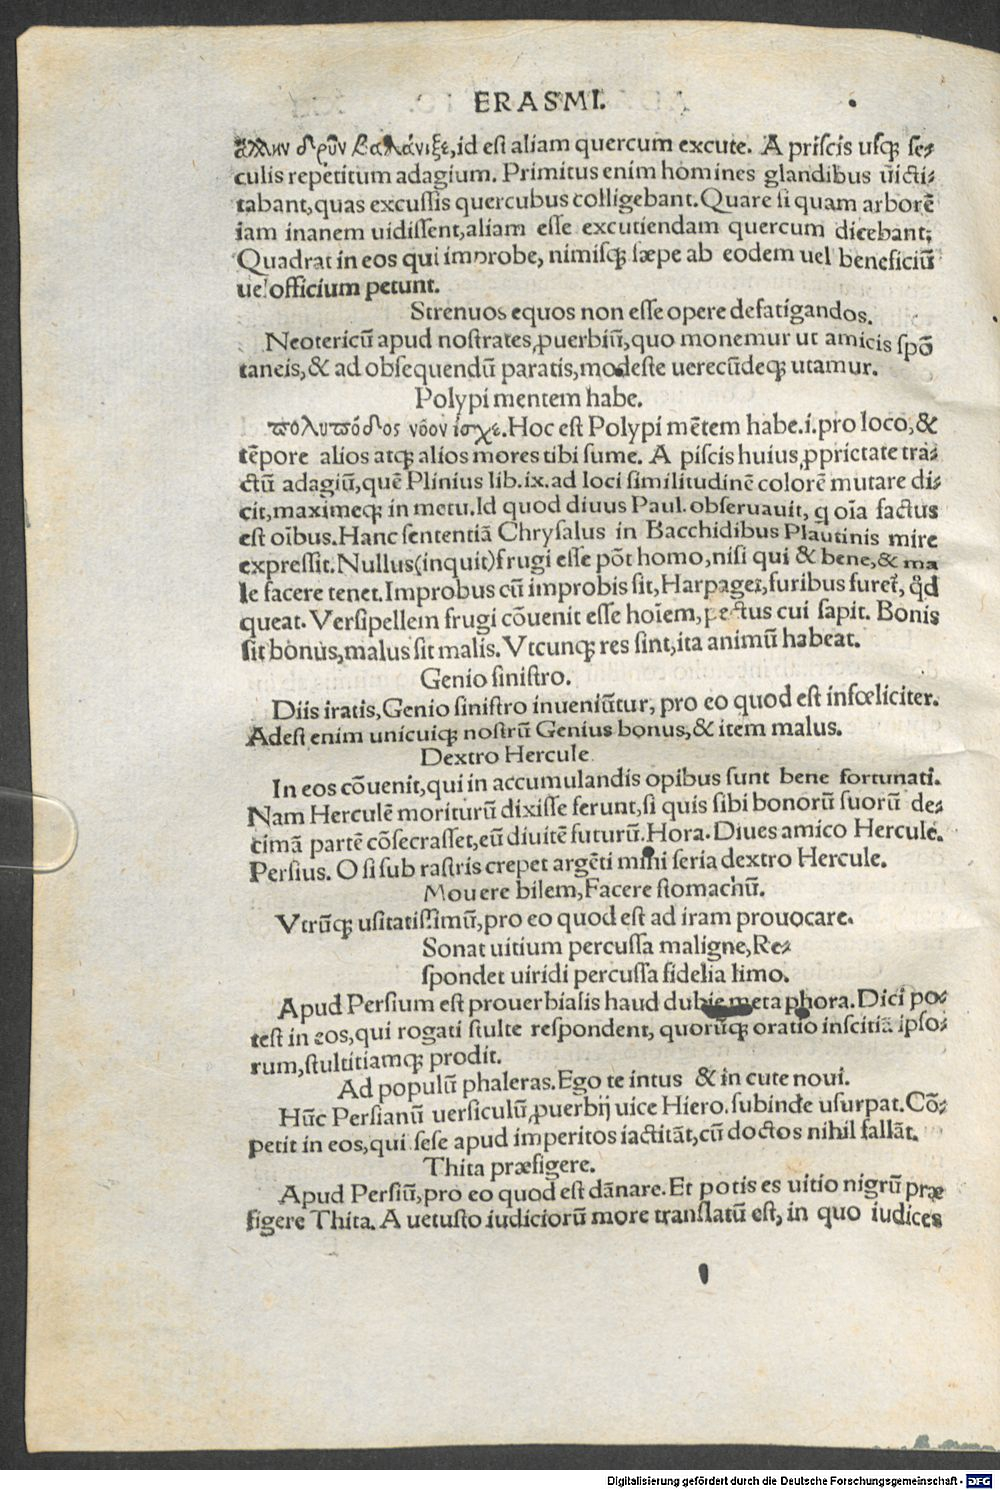 ERASMI.
ἄλλην δρῦν βαλάνιξε,id est aliam quercum excute. A priscis usq; se⸗
culis repetitum adagium. Primitus enim homines glandibus uicti⸗
tabant,quas excussis quercubus colligebant. Quare si quam arborē
iam inanem uidissent,aliam esse excutiendam quercum dicebant;
Quadrat in eos qui improbe, nimisq; sæpe ab eodem uel beneficiū
uel officium petunt.
Strenuos equos non esse opere defatigandos.
Neotericū apud nostrates ꝓuerbiū,quo monemur ut amicis spō
taneis,& ad obsequendū paratis,modeste uerecūdeq; utamur.
Polypi mentem habe.
πολυπόδος νόον ἴσχε.Hoc est Polypi mētem habe.i.pro loco,&
tēpore alios atq; alios mores tibi sume. A piscis huius ꝓprietate tra⸗
ctū adagiū,quē Plinius lib.ix.ad loci similitudinē colorē mutare di⸗
cit,maximeq; in metu.Id quod diuus Paul. obseruauit, q oīa factus
est oībus.Hanc sententiā Chrysalus in Bacchidibus Plautinis mire
expressit.Nullus(inquit)frugi esse pōt homo,nisi qui & bene,& ma
le facere tenet.Improbus cū improbis sit,Harpaget,furibus furet, qd
queat. Versipellem frugi cōuenit esse hoīem,pectus cui sapit. Bonis
sit bonus,malus sit malis. Vtcunq; res sint,ita animū habeat.
Genio sinistro.
Diis iratis,Genio sinistro inueniūtur, pro eo quod est infœliciter.
Adest enim unicuiq; nostrū Genius bonus,& item malus.
Dextro Hercule
In eos cōuenit,qui in accumulandis opibus sunt bene fortunati.
Nam Herculē moriturū dixisse ferunt,si quis sibi bonorū suorū de⸗
cimā partē cōsecrasset,eū diuitē futurū.Hora. Diues amico Hercule.
Persius. O si sub rastris crepet argēti mihi seria dextro Hercule.
Mouere bilem,Facere stomachū.
Vtrūq; usitatissimū,pro eo quod est ad iram prouocare.
Sonat uitium percussa maligne,Re⸗
spondet uiridi percussa fidelia limo.
Apud Persium est prouerbialis haud dubie metaphora. Dici po⸗
test in eos,qui rogati stulte respondent, quorūq; oratio inscitiā ipso⸗
rum,stultitiamq; prodit.
Ad populū phaleras.Ego te intus & in cute noui.
Hūc Persianū uersiculū ꝓuerbij uice Hiero.subinde usurpat.Cō⸗
petit in eos,qui sese apud imperitos iactitāt,cū doctos nihil fallāt.
Thita præfigere.
Apud Persiū,pro eo quod est dānare.Et potis es uitio nigrū præ
figere Thita. A uetusto iudiciorū more translatū est, in quo iudices
Digitalisierung gefördert durch die Deutsche Forschungsgemeinschaft - DFG